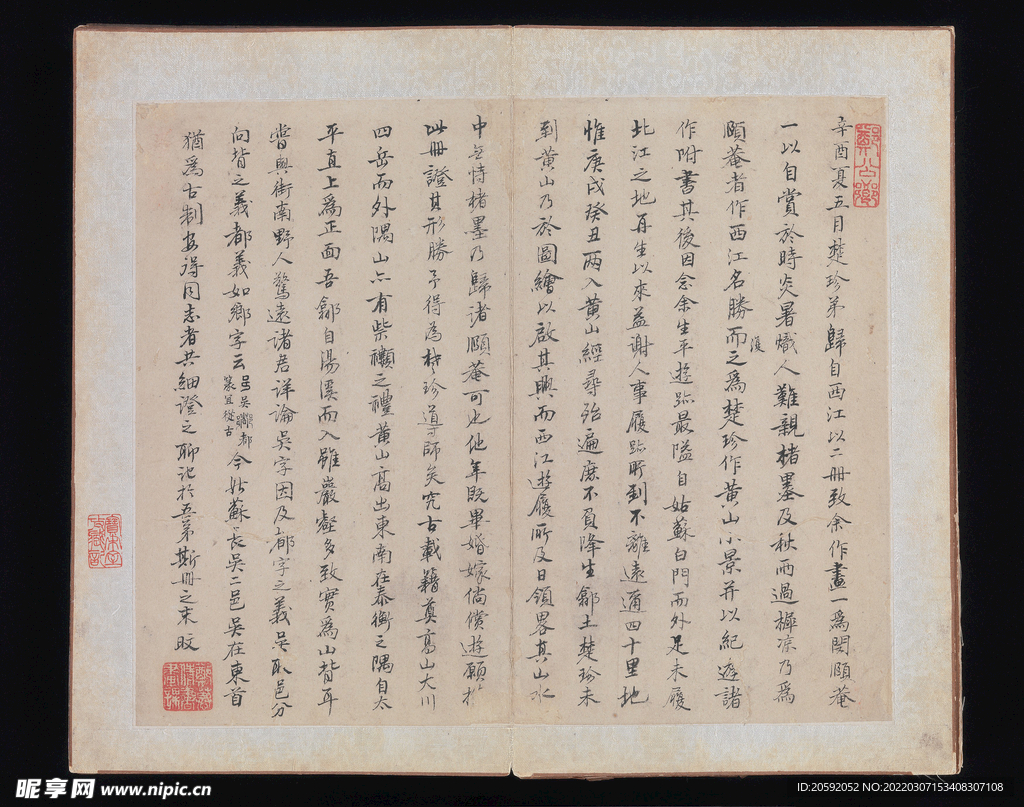 辛酉夏五月楚珍弟歸自西江以二冊致余作畫一為閔頤菴
一以自賞於時炎暑熾人難親楮墨及秋雨過樨凉乃為
頤菴者作西江名勝而復之為楚珍作黃山小景并以紀遊諸
作附書其後因念余生平遊跡最隘自姑蘇白門而外足未履
北江之地再生以來益謝人事履跡所到不離遠邇四十里地
惟庚戌癸丑兩入黃山經尋殆遍庶不負降生鄣土楚珍未
到黃山乃於圖繪以啟其興而西江遊履所及日領畧其山水
中無恃楮墨乃歸諸頤菴可也他年既畢婚嫁倘償遊願於
此冊證其形勝予得為楚珍導師矣究古載籍奠高山大川
四岳而外隅山亦有柴禷之禮黃山高出東南在泰衡之隅自太
平直上為正面吾鄣自湯溪而入雖巖壑多致實為山背耳
嘗與街南野人驚遠諸君詳論吳字因及都字之義吳取邑分
向背之義都義如鄉字云
今姑蘇長吳二邑吳在東首
猶為古制安得同志者共細證之聊記於吾弟斯冊之末旼
昵享网 www.nipic.cn
ID:20592052 NO:20220307153408307108